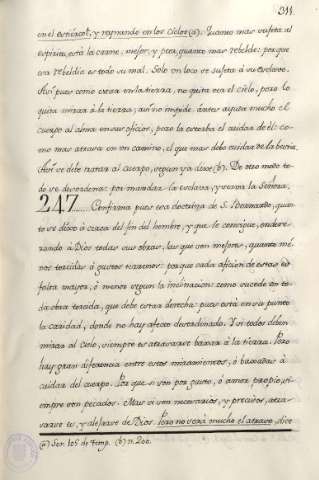 311.
en el estiércol, y reynando en los Cielos (a). Quanto mas sujeta al
espiritu, está la carne, mejor, y peor, quanto mas rebelde: porque
esa rebeldia es todo su mal. Solo un loco se sujeta á su esclavo.
Asi pues como crecer en la tierra, no quita ver el cielo, pero lo
quita mirar á la tierra; asi no impide, ántes ayuda mucho el
cuerpo al alma en sus oficios, pero la estorba el cuidar de él: co-
mo mas atrasa en un camino, el que mas debo cuidar de la bestia.
Asi se debe tratar al cuerpo, segun ya dixe (b). De otro modo to-
do se desordena: por mandar la esclava, y servir la Señora.
247 Confirma pues esa doctrina de S. Bernardo, quan-
to se dixo á cerca del fin del hombre, y que le consigue, endere-
zando á Dios todas sus obras, las que son mejores, quanto mé-
nos torcidas á gustos rateros: porque cada aficion de estas es
falta mayor, ó menor segun la inclinacion: como sucede en to-
da obra torcida, que debe estar derecha: pues está en su punto
la caridad, donde no hay afecto desordenado. Y si todos deben
mirar al Cielo, siempre es atrasarse baxar á la tierra. Pero
hay gran diferencia entre estos miramientos, ó baxadas á
cuidar del cuerpo. Por que si son por gusto, ó amor propio, si-
empre son pecados. Mas si son necesarios, y precisos, atra-
sarse es, y alejarse de Dios. Pero no será mucho el atraso, dice
(a) Ser. 105 de Temp. (b) n. 200.